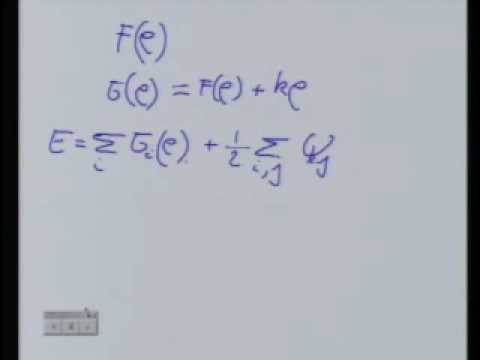 F(ρ)
G(ρ) = F(ρ) + kρ
E = Σ_i G_i(ρ) + 1/2 Σ_{i,j} φ_{ij}